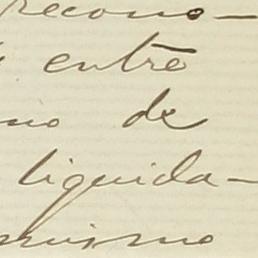 recono-
entre
no de
liquida-
mismo